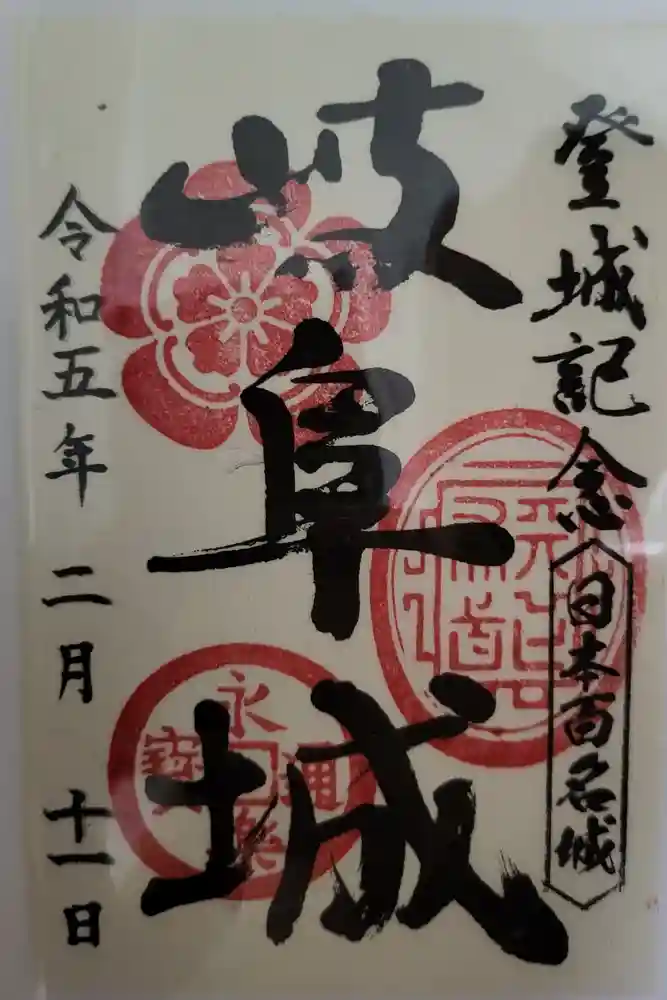 登城記念
日本百名城
岐阜城
永楽通寳
令和五年 二月 十一日